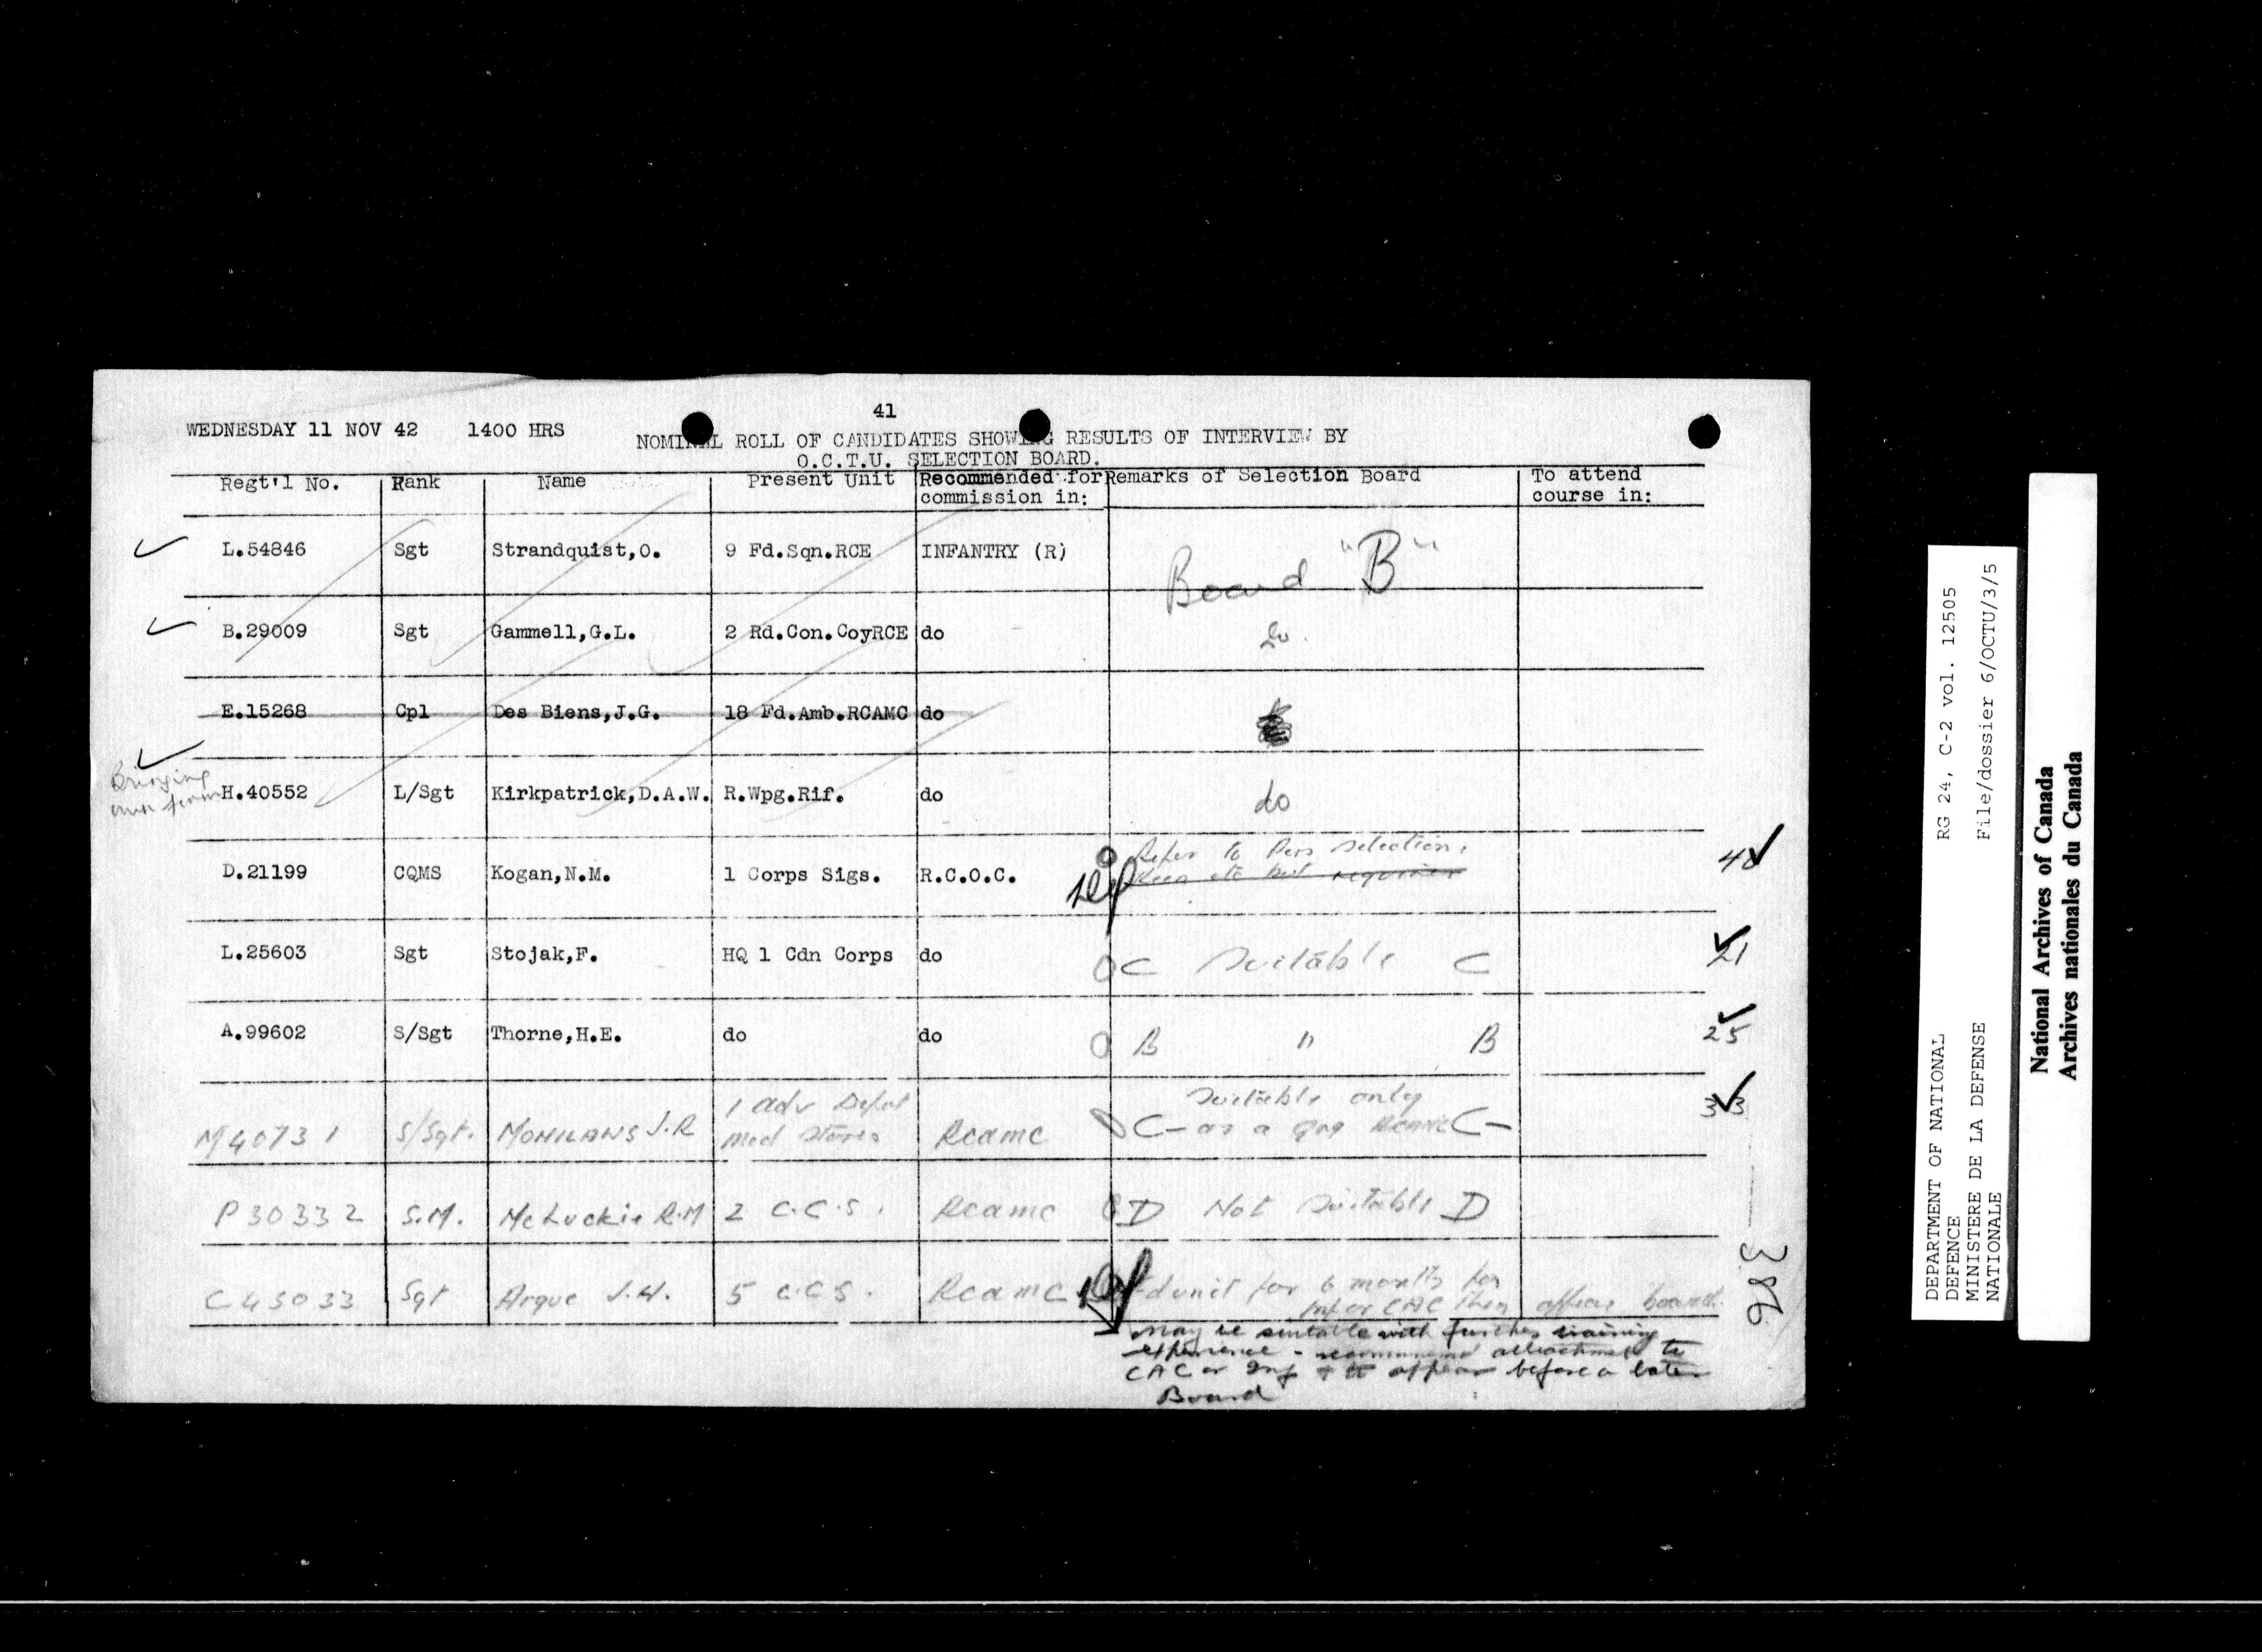 41
WEDNESDAY 11 NOV 42 1400 HRS
NOMINAL ROLL OF CANDIDATES SHOWING RESULTS OF INTERVIEW BY
O.C.T.U. SELECTION BOARD.
Regt'l No. Rank Name Present Unit Recommended for commission in: Remarks of Selection Board To attend course in:
L.54846 Sgt Strandquist,O. 9 Fd.Sqn.RCE INFANTRY (R) Board "B"
B.29009 Sgt Gammell,G.L. 2 Rd.Con.CoyRCE do do.
E.15268 Cpl Des Biens,J.G. 18 Fd.Amb.RCAMC do
Bringing
own form
H.40552 L/Sgt Kirkpatrick,D.A.W. R.Wpg.Rif. do do
Refer to Pers selection.
D.21199 CQMS Kogan,N.M. 1 Corps Sigs. R.C.O.C. Def 40
L.25603 Sgt Stojak,F. HQ 1 Cdn Corps do C Suitable C 21
A.99602 S/Sgt Thorne,H.E. do do B " B 25
1 Adv Depot Suitable only 33
M40731 S/Sgt. J.R Med Stores RCAMC C- as a C-
P30332 S.M. McLuckie R.M 2 C.C.S. RCAMC D Not Suitable D
C45033 Sgt Argue J.H. 5 C.C.S. RCAMC Def unit for 6 months
Inf or CAC then appear board.
May be suitable with further training
experience - recommend attachment to
CAC or Inf & to appear before a later
Board
386
DEPARTMENT OF NATIONAL
DEFENCE
MINISTERE DE LA DEFENSE
NATIONALE
RG 24, C-2 vol. 12505
File/dossier 6/OCTU/3/5
National Archives of Canada
Archives nationales du Canada